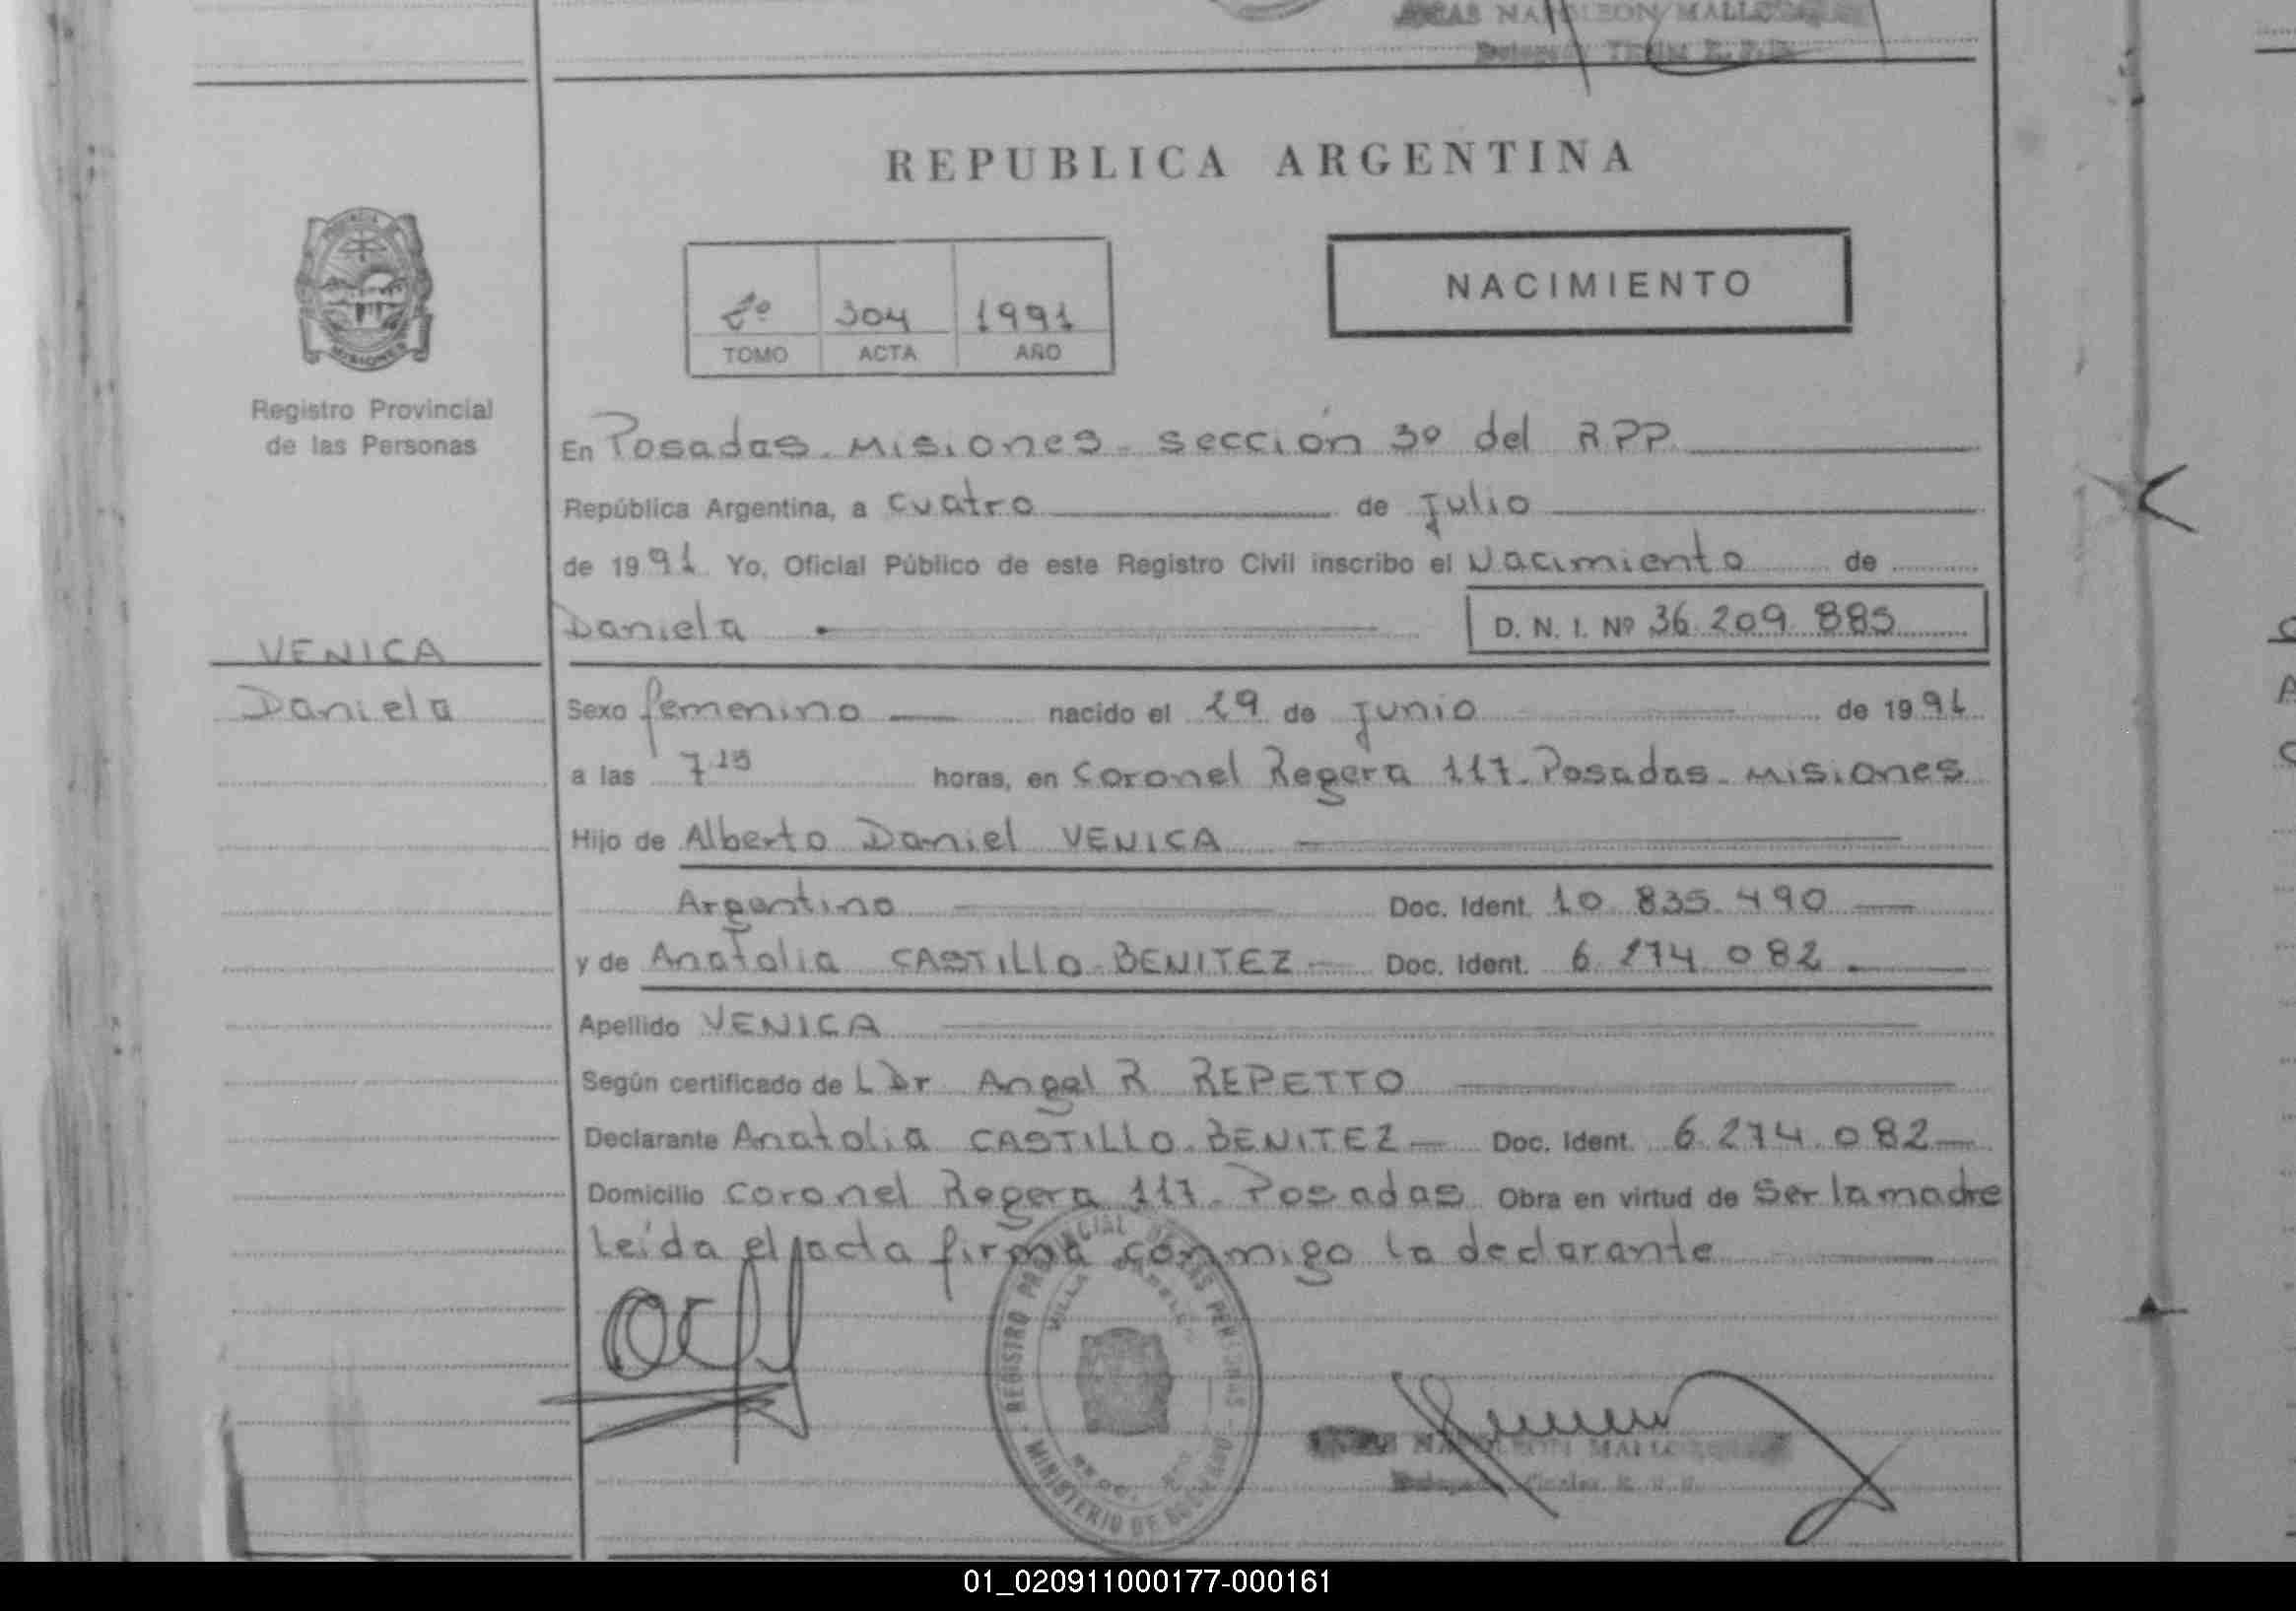 NAPOLEON MALLO
REPUBLICA ARGENTINA
NACIMIENTO
304 1991
TOMO ACTA AÑO
MISIONES
Registro Provincial
de las Personas
En Posadas. Misiones - sección 3º del R.P.P.
República Argentina, a cuatro de Julio
de 1991 Yo, Oficial Público de este Registro Civil inscribo el Nacimiento de
Daniela D. N. I. Nº 36.209.885
VENICA
Daniela
Sexo femenino nacido el 29 de Junio de 1991
a las 7 15 horas, en Coronel Regera 117. Posadas - Misiones
Hijo de Alberto Daniel VENICA
Argentino Doc. Ident. 10.835.490
y de Anatolia CASTILLO BENITEZ Doc. Ident. 6.274.082
Apellido VENICA
Según certificado de L Dr Angel R REPETTO
Declarante Anatolia CASTILLO BENITEZ Doc. Ident. 6.274.082
Domicilio Coronel Regera 117. Posadas Obra en virtud de Ser la madre
Leída el acta firma conmigo la declarante
REGISTRO PROVINCIAL DE LAS PERSONAS
MINISTERIO DE GOBIERNO
NAPOLEON MALLO
01_020911000177-000161